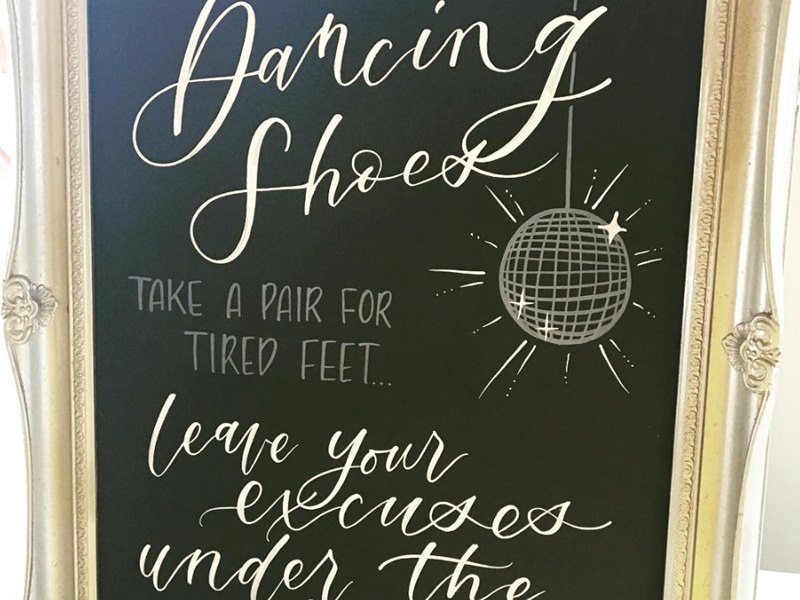 Dancing
Shoes
TAKE A PAIR FOR
TIRED FEET...
leave your
excuses
under the